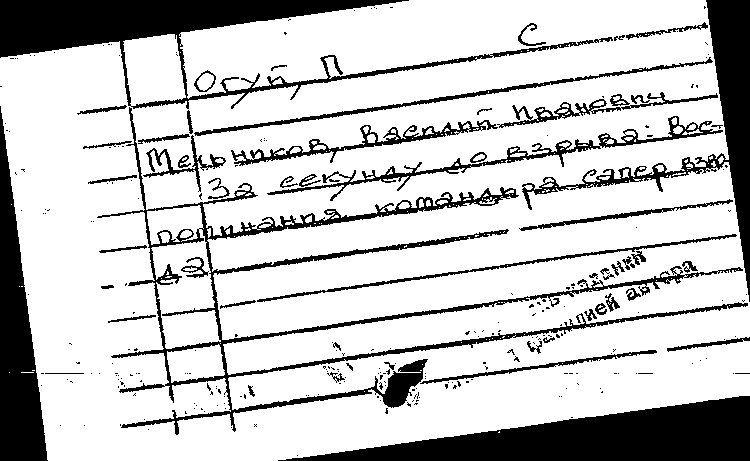 С
Огуй, П
Мельников, Василий Иванович
За секунду до взрыва: Вос-
поминания командира сапер взво-
да
изданий
фамилией автора